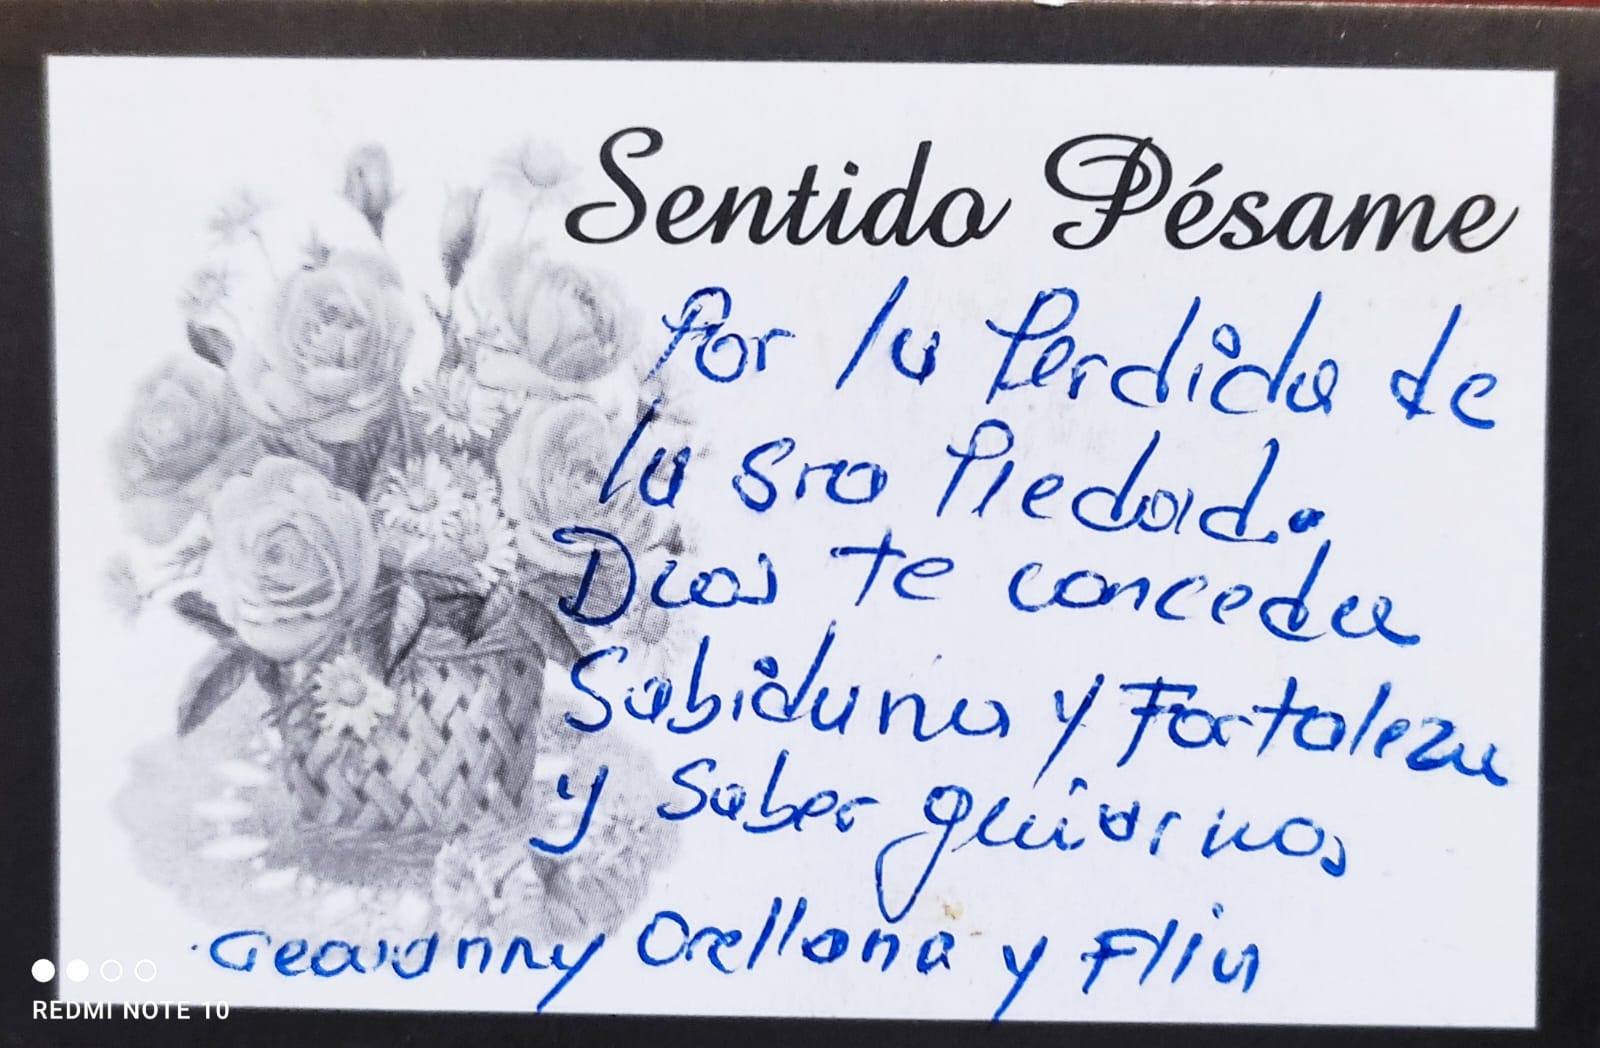 Sentido Pésame
Por la Perdida de
la sra Piedad.
Dios te conceda
Sabiduria y Fortaleza
y Saber guiarnos
Geovanny Orellana y Flia
REDMI NOTE 10